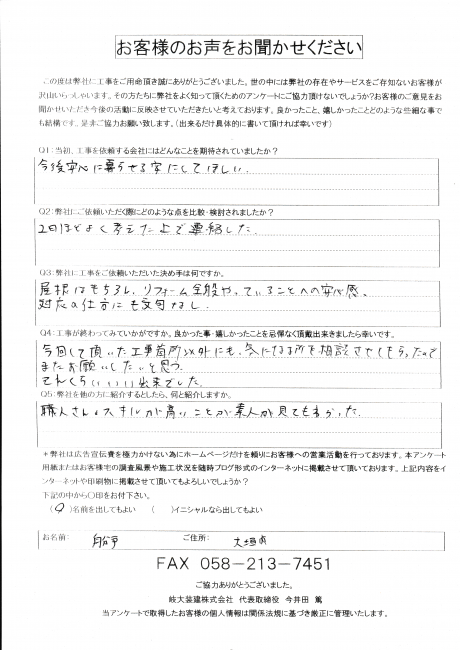 お客様のお声をお聞かせください
この度は弊社に工事をご用命頂き誠にありがとうございました。世の中には弊社の存在やサービスをご存知ないお客様が
沢山いらっしゃいます。その方たちに弊社をよく知って頂くためのアンケートにご協力頂けないでしょうか?お客様のご意見をお
聞かせいただき今後の活動に反映させていただきたいと考えております。良かったこと、嬉しかったことどのような些細な事で
も結構です。是非ご協力お願い致します。(出来るだけ具体的に書いて頂ければ幸いです)
Q1:当初、工事を依頼する会社にはどんなことを期待されていましたか?
今後安心に暮らせる家にしてほしい。
Q2:弊社にご依頼いただく際にどのような点を比較・検討されましたか?
2日ほどよく考えた上で連絡した。
Q3:弊社に工事をご依頼いただいた決め手は何ですか。
屋根はもちろん、リフォーム全般やっていることへの安心感。
対応の仕方にも文句なし。
Q4:工事が終わってみていかがですか。良かった事・嬉しかったことを忌憚なく頂戴出来きましたら幸いです。
今回して頂いた工事箇所以外にも、気になる所を相談させてもらったので
またお願いしたいと思う。
てんくらいいいい出来でした。
Q5:弊社を他の方に紹介するとしたら、何と紹介しますか。
職人さんのスキルが高いことが素人が見てもわかった。
*弊社は広告宣伝費を極力かけない為にホームページだけを頼りにお客様への営業活動を行っております。本アンケート
用紙またはお客様宅の調査風景や施工状況を随時ブログ形式のインターネットに掲載させて頂いております。上記内容をイ
ンターネットや印刷物に掲載させて頂いてもよろしいでしょうか?
下記の中から〇印をお付下さい。
(〇)名前を出してもよい ( )イニシャルなら出してもよい
お名前: ご住所: 大垣市
FAX 058-213-7451
ご協力ありがとうございました。
岐大装建株式会社 代表取締役 今井田 篤
当アンケートで取得したお客様の個人情報は関係法規に基づき厳正に管理いたします。